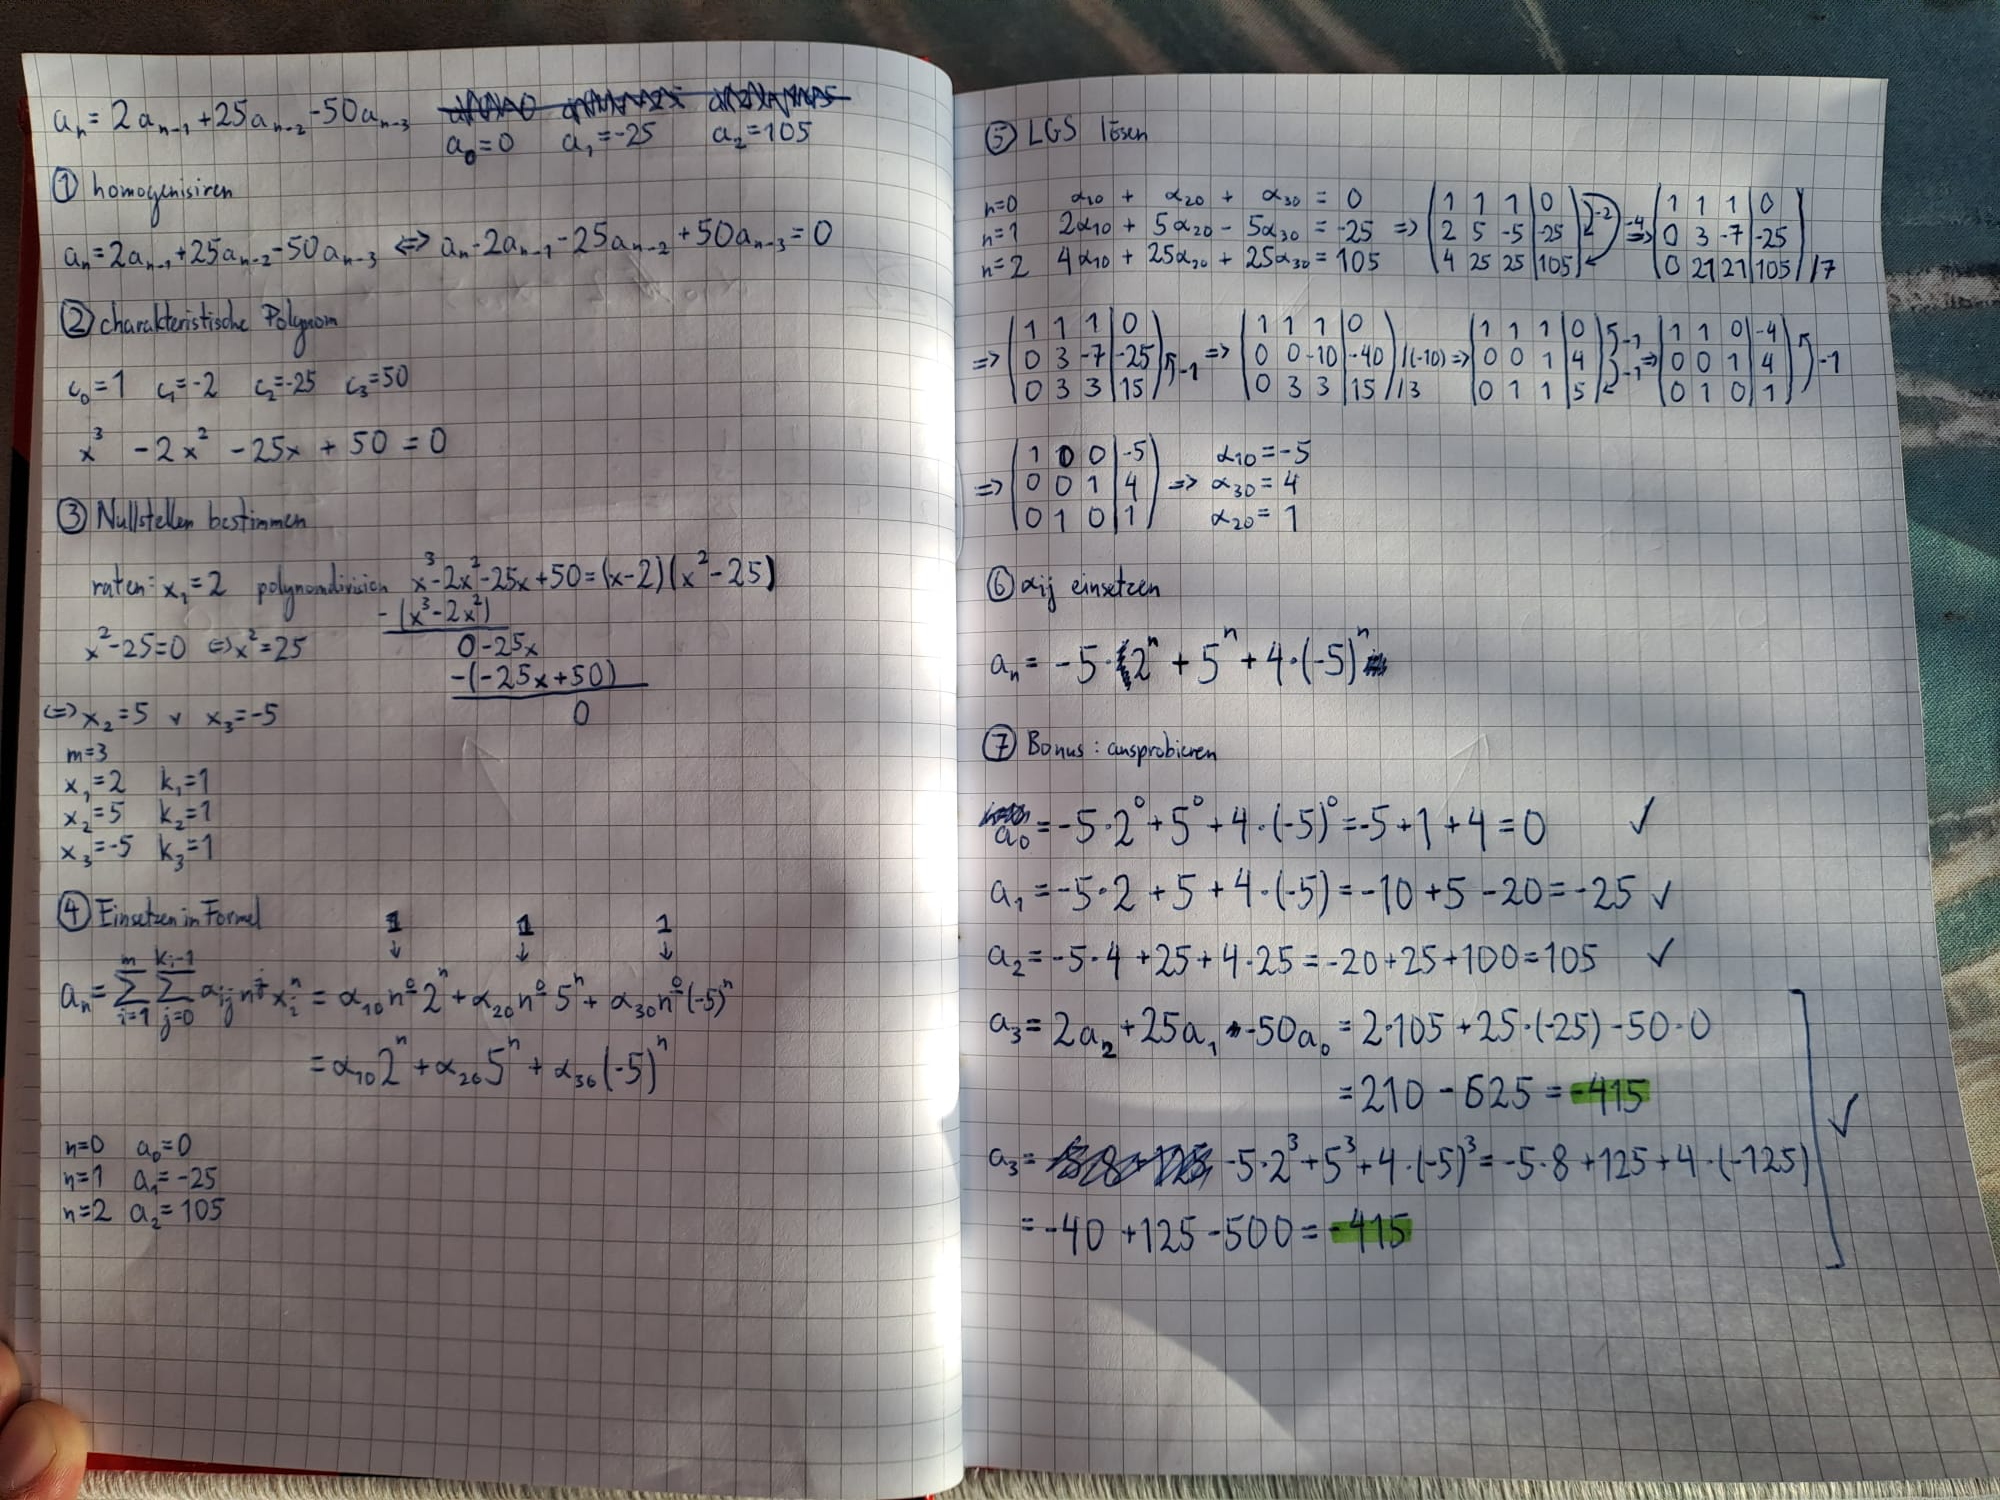 aₙ = 2aₙ₋₁ + 25aₙ₋₂ - 50aₙ₋₃
a₀ = 0 a₁ = -25 a₂ = 105
① homogenisiren
aₙ = 2aₙ₋₁ + 25aₙ₋₂ - 50aₙ₋₃ <=> aₙ - 2aₙ₋₁ - 25aₙ₋₂ + 50aₙ₋₃ = 0
② charakteristische Polynom
c₀ = 1 c₁ = -2 c₂ = -25 c₃ = 50
x³ - 2x² - 25x + 50 = 0
③ Nullstellen bestimmen
raten: x₁ = 2 polynomdivision x³ - 2x² - 25x + 50 = (x-2)(x² - 25)
-(x³ - 2x²)
x² - 25 = 0 <=> x² = 25 0 - 25x
-(-25x + 50)
<=> x₂ = 5 v x₃ = -5 0
m = 3
x₁ = 2 k₁ = 1
x₂ = 5 k₂ = 1
x₃ = -5 k₃ = 1
④ Einsetzen in Formel 1 1 1
↓ ↓ ↓
aₙ = Σᵢ₌₁ᵐ Σⱼ₌₀ᵏⁱ⁻¹ αᵢⱼ nʲ xᵢⁿ = α₁₀ n⁰ 2ⁿ + α₂₀ n⁰ 5ⁿ + α₃₀ n⁰ (-5)ⁿ
= α₁₀ 2ⁿ + α₂₀ 5ⁿ + α₃₀ (-5)ⁿ
n=0 a₀ = 0
n=1 a₁ = -25
n=2 a₂ = 105
⑤ LGS lösen
n=0 α₁₀ + α₂₀ + α₃₀ = 0 | 1 1 1 | 0 | | 1 1 1 | 0 |
n=1 2α₁₀ + 5α₂₀ - 5α₃₀ = -25 => | 2 5 -5 | -25 | -2 -4 => | 0 3 -7 | -25 |
n=2 4α₁₀ + 25α₂₀ + 25α₃₀ = 105 | 4 25 25 | 105 | | 0 21 21 | 105 | /7
| 1 1 1 | 0 | | 1 1 1 | 0 | | 1 1 1 | 0 | -1 | 1 1 0 | -4 |
=> | 0 3 -7 | -25 | -1 => | 0 0 -10 | -40 | /(-10) => | 0 0 1 | 4 | -1 => | 0 0 1 | 4 | -1
| 0 3 3 | 15 | | 0 3 3 | 15 | /3 | 0 1 1 | 5 | | 0 1 0 | 1 |
| 1 0 0 | -5 | α₁₀ = -5
=> | 0 0 1 | 4 | => α₃₀ = 4
| 0 1 0 | 1 | α₂₀ = 1
⑥ αij einsetzen
aₙ = -5·2ⁿ + 5ⁿ + 4·(-5)ⁿ
⑦ Bonus: ausprobieren
a₀ = -5·2⁰ + 5⁰ + 4·(-5)⁰ = -5 + 1 + 4 = 0 ✓
a₁ = -5·2 + 5 + 4·(-5) = -10 + 5 - 20 = -25 ✓
a₂ = -5·4 + 25 + 4·25 = -20 + 25 + 100 = 105 ✓
a₃ = 2a₂ + 25a₁ - 50a₀ = 2·105 + 25·(-25) - 50·0
= 210 - 625 = -415
✓
a₃ = -5·2³ + 5³ + 4·(-5)³ = -5·8 + 125 + 4·(-125)
= -40 + 125 - 500 = -415